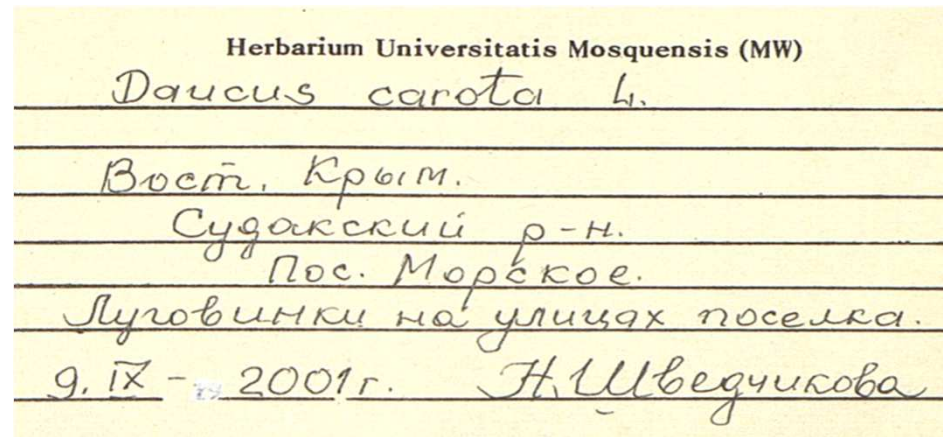 Herbarium Universitatis Mosquensis (MW)
Daucus carota L.
Вост. Крым.
Судакский р-н.
Пос. Морское.
Луговинки на улицах поселка.
9. IX - 2001г. Н. Шведчикова